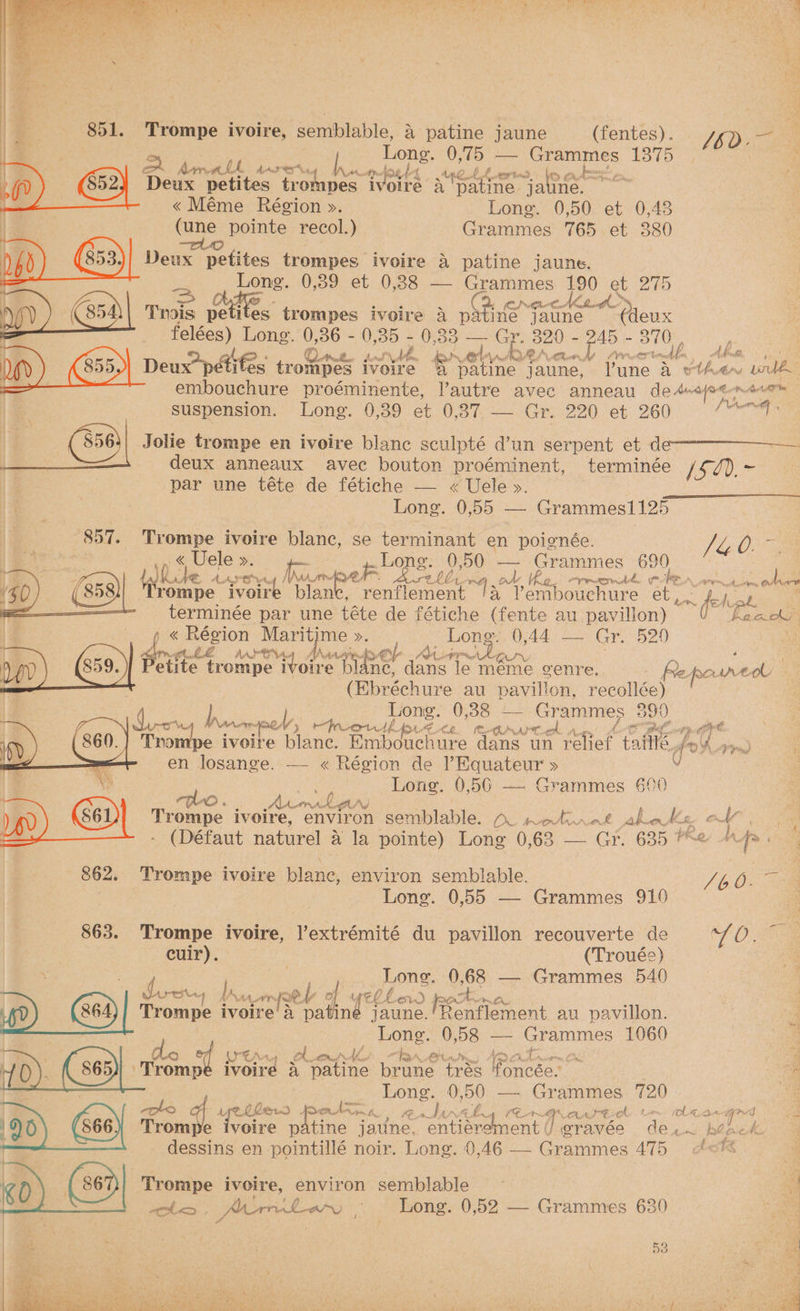 851. Trompe ivoire, semblable, à patine jaune (fentes). 160.-
Long. 0,75 — Grammes 1375
2 small ivory trumpets yellow
852. Deux petites trompes ivoire à patine jaune.
« Même Région ». Long. 0,50 et 0,43
(une pointe recol.) Grammes 765 et 380
do
160 853. Deux petites trompes ivoire à patine jaune.
Long. 0,39 et 0,38 — Grammes 190 et 275
3 ditto (2 cracked)
854. Trois petites trompes ivoire à patine jaune (deux
felées) Long. 0,36 - 0,35 - 0,33 — Gr. 320 - 245 - 370
855. Deux petites trompes ivoire à patine jaune, l'une à other with
embouchure proéminente, l'autre avec anneau de suspension
suspension. Long. 0,39 et 0,37 — Gr. 220 et 260 ring.
856. Jolie trompe en ivoire blanc sculpté d'un serpent et de
deux anneaux avec bouton proéminent, terminée 150.-
par une tête de fétiche — « Uele ».
Long. 0,55 — Grammes1125
857. Trompe ivoire blanc, se terminant en poignée. 140.-
« Uele ». Long. 0,50 — Grammes 690
White ivory trumpet. Swelling at the mouth
858. Trompe ivoire blanc, renflement à l'embouchure et fetish
terminée par une tête de fétiche (fente au pavillon) head
« Région Maritime ». Long. 0,44 — Gr. 520
Small ivory trumpet similar
859. Petite trompe ivoire blanc, dans le même genre. Repaired
(Ebréchure au pavillon, recollée)
Long. 0,38 — Grammes 390
Ivory trumpet, mouth piece
860. Trompe ivoire blanc. Embouchure dans un relief taillé
en losange. — « Région de l'Equateur »
Long. 0,56 — Grammes 600
do. similar
861 Trompe ivoire, environ semblable. a natural shake at
- (Défaut naturel à la pointe) Long 0,63 — Gr. 635 the tip.
862. Trompe ivoire blanc, environ semblable. 160.-
Long. 0,55 — Grammes 910
863. Trompe ivoire, l'extrémité du pavillon recouverte de 70.-
cuir). (Trouée)
Long. 0,68 — Grammes 540
Ivory trumpet of yellow patina
864) Trompe ivoire à patiné jaune. Renflement au pavillon.
Long. 0,58 — Grammes 1060
do of very dark brown patina
70. 865) Trompé ivoiré à patine brune très foncée.
Long. 0,50 — Grammes 720
do of yellow patina, entirely engraved
90 866) Trompe ivoire patine jaune, entièrement gravée de black
dessins en pointillé noir. Long. 0,46 — Grammes 475 dots
867) Trompe ivoire, environ semblable
do. similar Long. 0,52 — Grammes 630
53